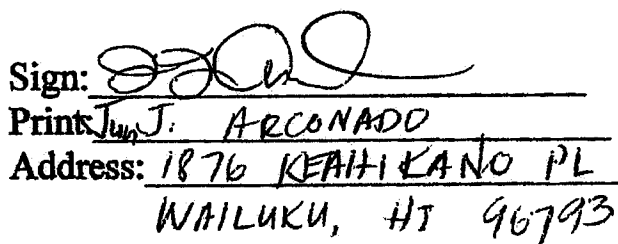 Sign:
Print: Jun J. ARCONADO
Address: 1876 KEAHIKANO PL
WAILUKU, HI 96793